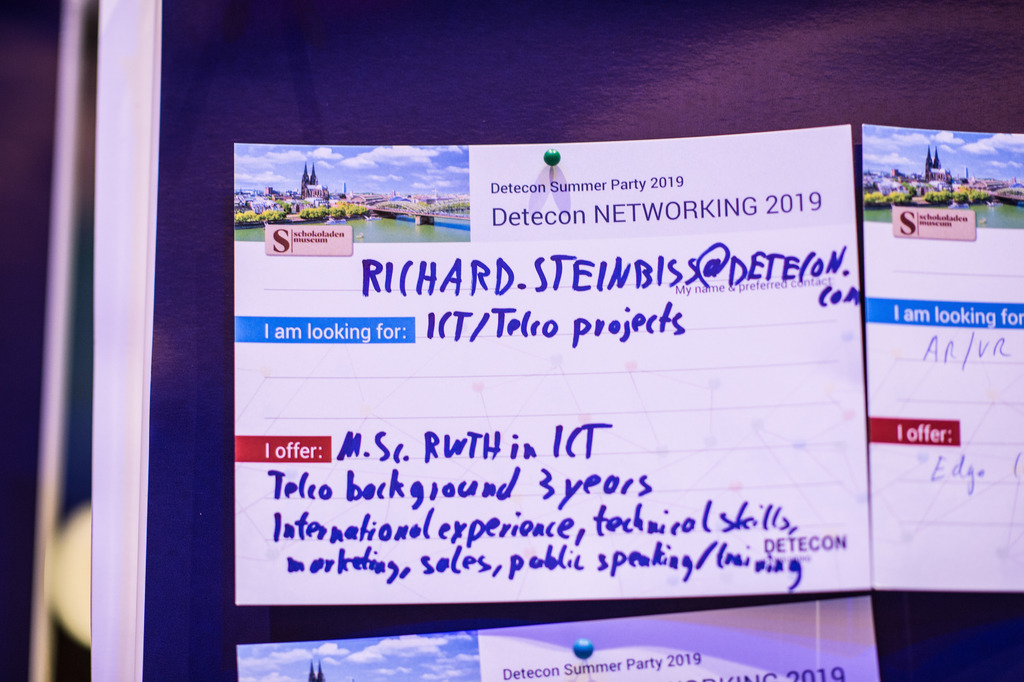 Detecon Summer Party 2019
Detecon NETWORKING 2019
S schokoladen
museum
RICHARD.STEINBISS@DETECON.
COM
My name & preferred contact:
I am looking for: ICT/Telco projects
I offer: M.Sc. RWTH in ICT
Telco background 3 years
International experience, technical skills,
marketing, sales, public speaking/training
DETECON
S schokoladen
museum
I am looking for
AR/VR
I offer:
Edge
Detecon Summer Party 2019
RKING 2019